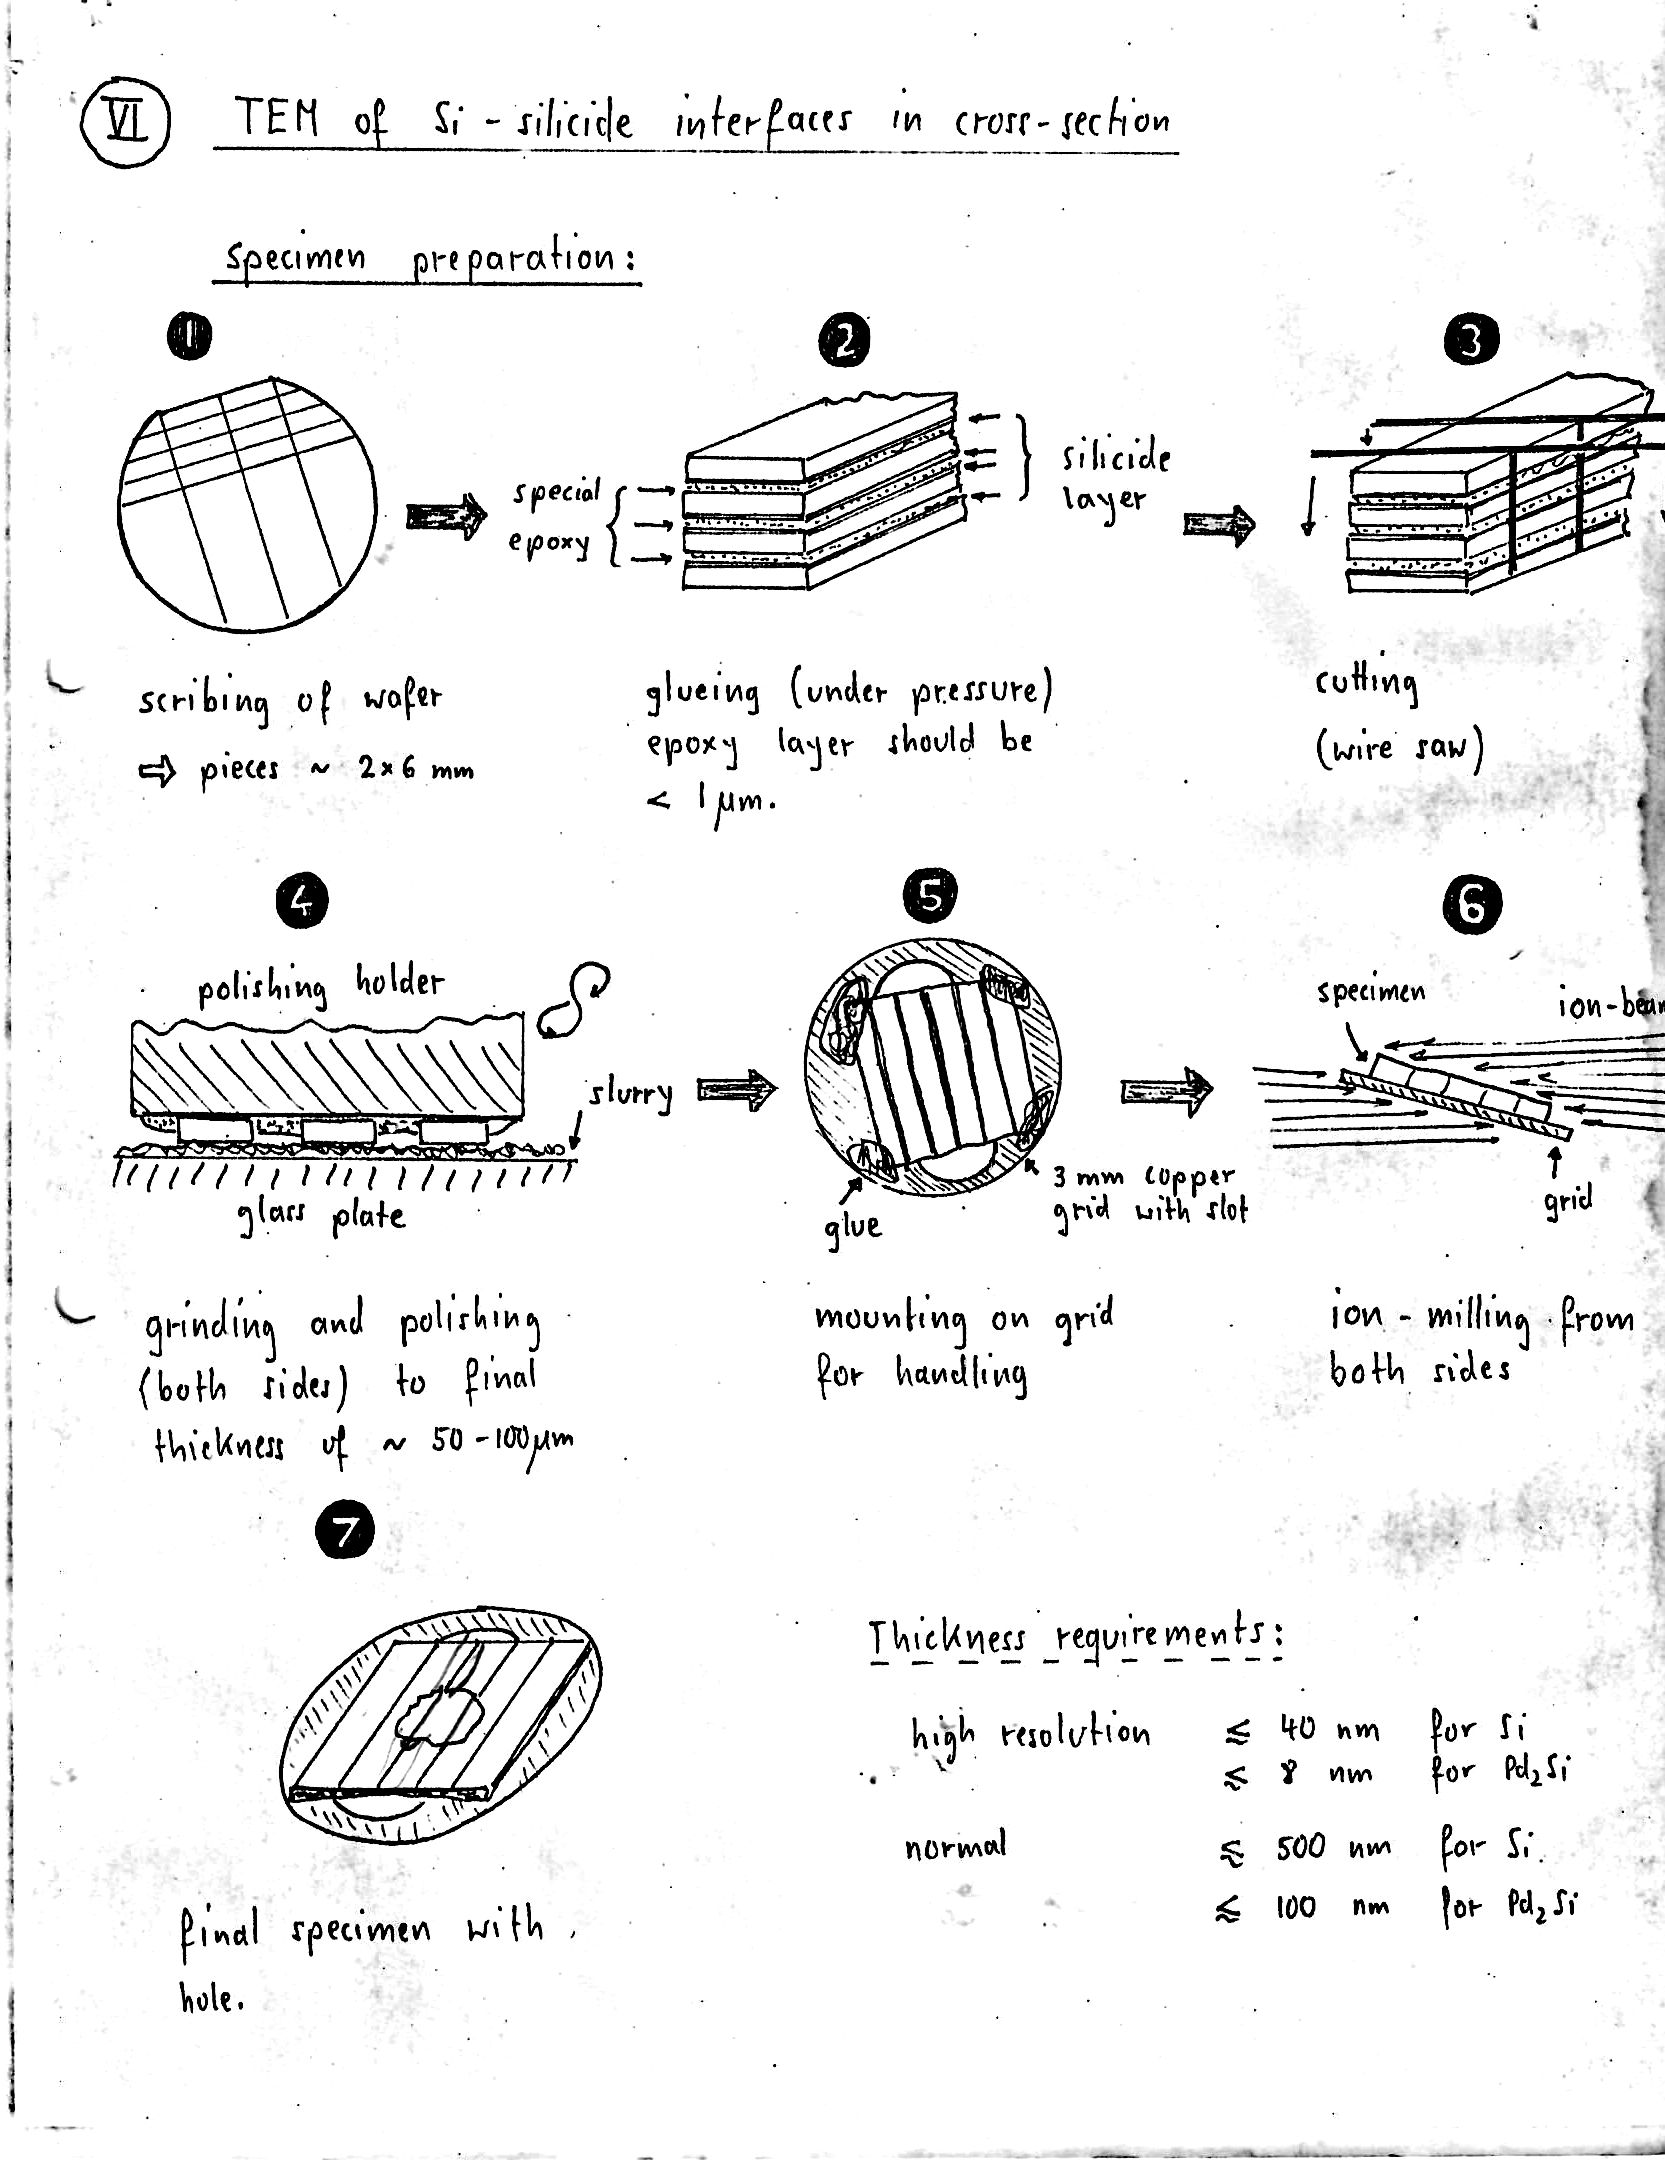 VI TEM of Si - silicide interfaces in cross-section
specimen preparation:
1
2
3
special
epoxy
silicide
layer
scribing of wafer
⇨ pieces ~ 2×6 mm
glueing (under pressure)
epoxy layer should be
< 1 μm.
cutting
(wire saw)
4
5
6
polishing holder
slurry
glass plate
glue
3 mm copper
grid with slot
specimen
ion-beam
grid
grinding and polishing
(both sides) to final
thickness of ~ 50-100μm
mounting on grid
for handling
ion - milling from
both sides
7
final specimen with
hole.
Thickness requirements:
high resolution ⪅ 40 nm for Si
⪅ 8 nm for Pd₂Si
normal ⪅ 500 nm for Si.
⪅ 100 nm for Pd₂Si